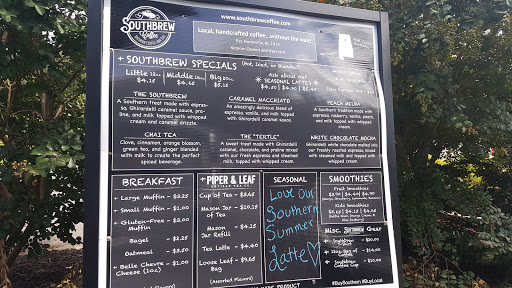 SOUTHBREW
Coffee
www.southbrewcoffee.com
Local, handcrafted coffee...without the wait!
Est. Huntsville, AL 2014
Veteran Owned and Operated
+ SOUTHBREW SPECIALS (Hot, Iced, or Blended!)
Little 12oz Middle 16oz Big 20oz
$4.15 $4.65 $5.15
Ask about our
* SEASONAL LATTE! *
THE SOUTHBREW
A Southern treat made with espresso, Ghirardelli caramel sauce, praline, and milk topped with whipped cream and caramel drizzle.
CARAMEL MACCHIATO
An amazingly delicious blend of espresso, vanilla, and milk topped with Ghirardelli caramel sauce.
PEACH MELBA
A Southern tradition made with espresso, raspberry, vanilla, peach, and milk topped with whipped cream.
CHAI TEA
Clove, cinnamon, orange blossom, green tea, and ginger blended with milk to create the perfect spiced beverage.
THE "TERTLE"
A sweet treat made with Ghirardelli caramel, chocolate, and praline mixed with our fresh espresso and steamed milk, topped with whipped cream.
WHITE CHOCOLATE MOCHA
Ghirardelli white chocolate melted into our freshly roasted espresso, mixed with steamed milk and topped with whipped cream.
BREAKFAST
+ Large Muffin - $2.65
+ Small Muffin - $1.00
+ Gluten-Free - $2.00
Muffin
Bagel - $2.25
Oatmeal - $2.50
+ Belle Chevre - $1.00
Cheese (1oz)
+ PIPER & LEAF
ARTISAN TEA CO.
Cup of Tea - $2.65
Mason Jar - $10.15
of Tea
Mason - $4.15
Jar Refill
Tea Latte - $4.40
Loose Leaf - $9.65
Bag
(Assorted Flavors)
SEASONAL
Love Our
Southern
Summer
Latte ♡
SMOOTHIES
Fruit Smoothies
Kids Smoothies
Misc. SOUTHBREW Gear
$20.00
$14.00
Coffee Cup
#BuySouthern #BuyLocal